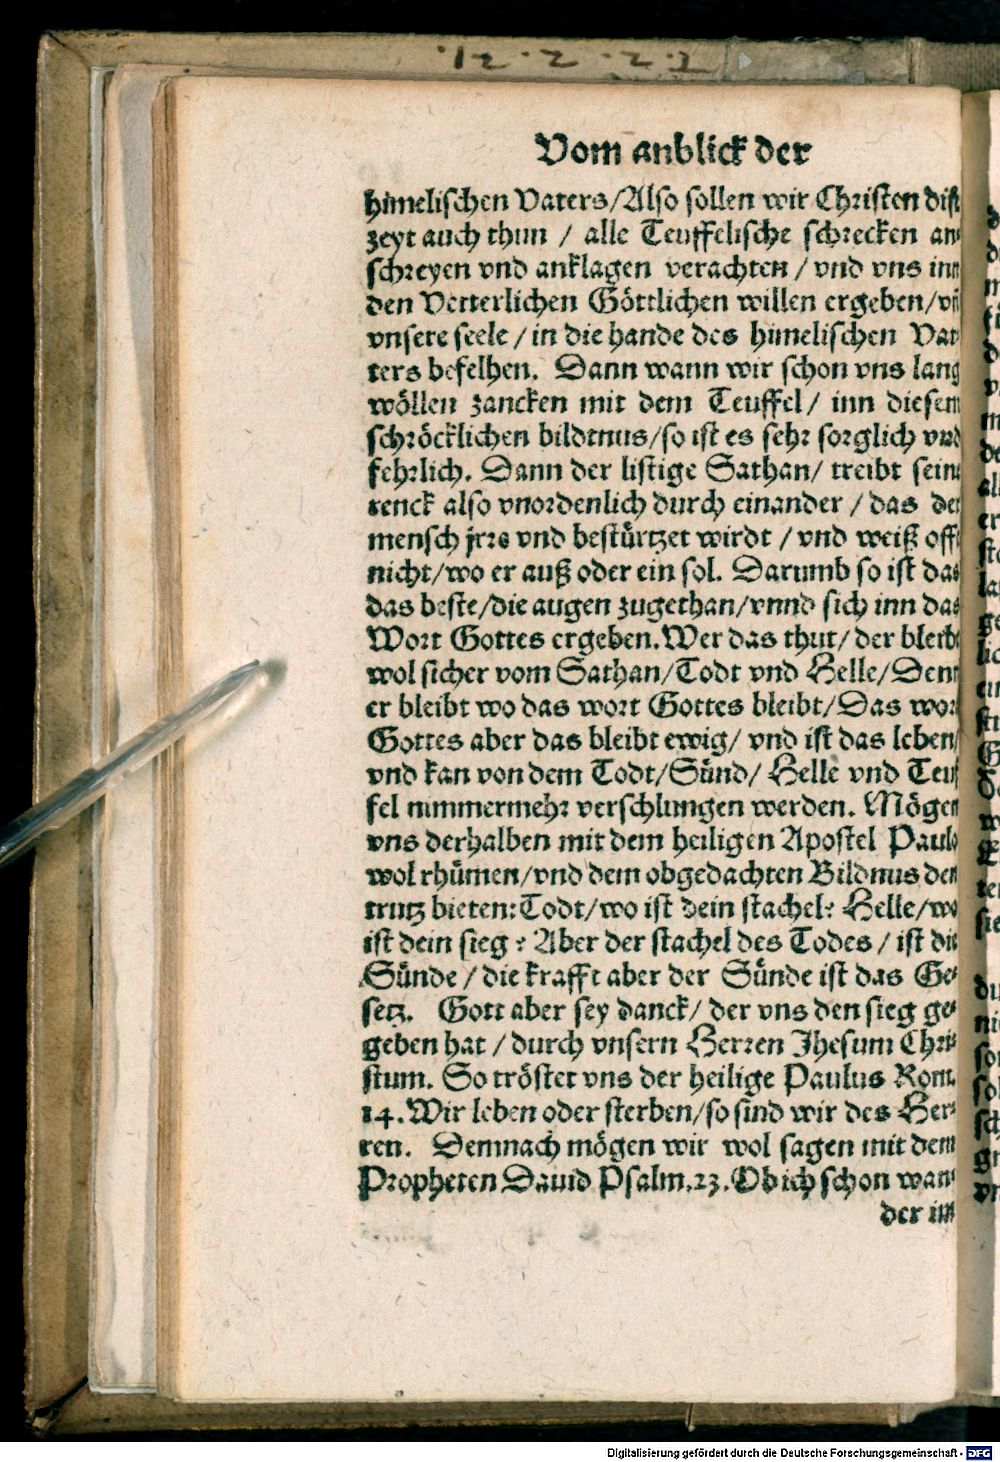 12.2.23
Vom anblick der
himelischen Vaters/Also sollen wir Christen diß
zeyt auch thun / alle Teuffelische schrecken an
schreyen vnd anklagen verachten / vnd vns inn
den Vetterlichen Göttlichen willen ergeben/vñ
vnsere seele / in die hande des himelischen Vat
ters befelhen. Dann wann wir schon vns lang
wöllen zancken mit dem Teuffel/ inn diesem
schröcklichen bildtnus/so ist es sehr sorglich vnd
fehrlich. Dann der listige Sathan/ treibt sein
renck also vnordenlich durch einander / das der
mensch jrre vnd bestürtzet wirdt / vnd weiß offt
nicht/wo er auß oder ein sol. Darumb so ist das
das beste/die augen zugethan/vnnd sich inn das
Wort Gottes ergeben. Wer das thut/ der bleibt
wol sicher vom Sathan/Todt vnd Helle/Denn
er bleibt wo das wort Gottes bleibt/Das wort
Gottes aber das bleibt ewig/ vnd ist das leben/
vnd kan von dem Todt/Sünd/ Helle vnd Teuf
fel nimmermehr verschlungen werden. Mögen
vns derhalben mit dem heiligen Apostel Paulo
wol rhümen/vnd dem obgedachten Bildnus den
trutz bieten: Todt/wo ist dein stachel? Helle/wo
ist dein sieg? Aber der stachel des Todes / ist die
Sünde / die krafft aber der Sünde ist das Ge⸗
setz. Gott aber sey danck/ der vns den sieg ge⸗
geben hat / durch vnsern Herren Jhesum Chri⸗
stum. So tröstet vns der heilige Paulus Rom.
14. Wir leben oder sterben/so sind wir des Her⸗
ren. Demnach mögen wir wol sagen mit dem
Propheten Dauid Psalm. 23. Ob ich schon wan⸗
der im
Digitalisierung gefördert durch die Deutsche Forschungsgemeinschaft - DFG